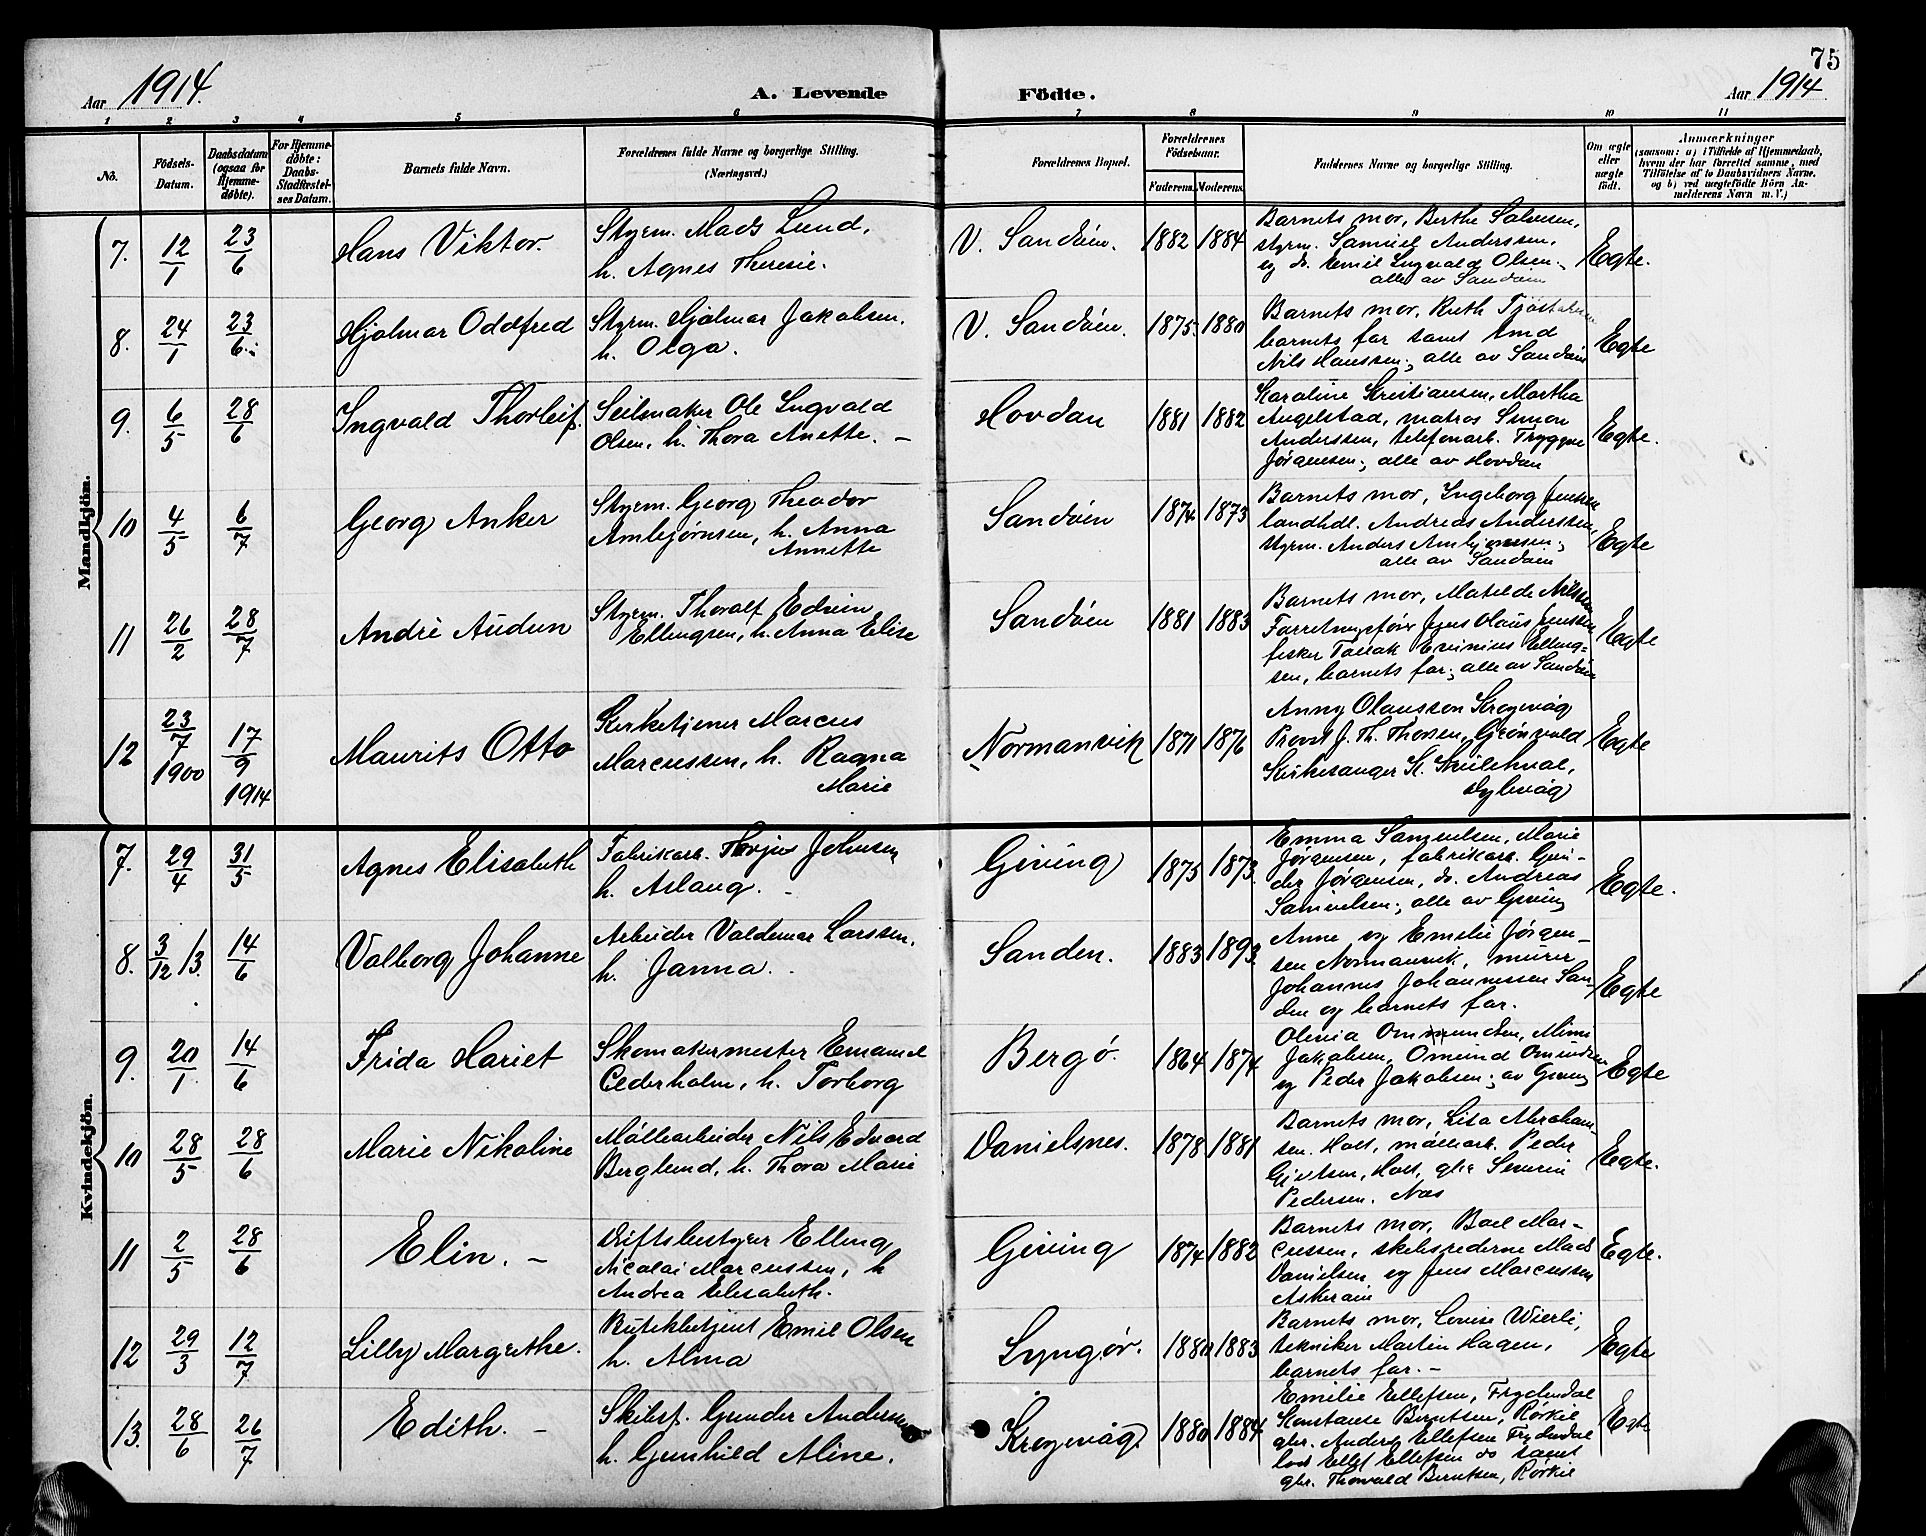 75
Aar 1914.
A. Levende
Födte.
Aar 1914
1 2 3 4 5 6 7 8 9 10 11
No.
Födsels-
Datum.
Daabsdatum
(ogsaa for
Hjemme-
døbte).
For Hjemme-
døbte:
Daabs-
Stadfæstel-
ses Datum.
Barnets fulde Navn.
Forældrenes fulde Navne og borgerlige Stilling.
(Næringsvei.)
Forældrenes Bopæl.
Forældrenes
Födselsaar.
Faderens. Moderens.
Faddernes Navne og borgerlige Stilling.
Om ægte
eller
uægte
født.
Anmærkninger
(saasom: a) i Tilfælde af Hjemmedaab,
hvem der har forrettet samme, med
Tilföielse af to Daabsvidners Navne.
og b) ved uægtefödte Börn An-
melderens Navn m.V.)
Mandkjön.
7. 12/1 23/6 Hans Viktor.
Styrm. Mads Lund,
h. Agnes Theresie.
V. Sandøen. 1882 1884
Barnets mor, Berthe Salvesen,
styrm. Samuel Anderssen,
og do. Emil Ingvald Olsen;
alle av Sandøen
Egte.
8. 24/1 23/6 Hjalmar Oddfred
Styrm. Hjalmar Jakobsen.
h. Olga.
V. Sandøen. 1875. 1880
Barnets mor, Ruth
barnets far samt
Nils Hanssen; alle av Sandøen
Egte
9. 6/5 28/6 Ingvald Thorleif.
Seilmaker Ole Ingvald
Olsen, h. Thora Anette. -
Hovdan 1881 1882
Karoline Kristiansen, Martha
Angelstad, matros Simon
Anderssen, telefonarb. Tryggve
Jørgensen; alle av Hovdan
Egte.
10 4/5 6/7 Georg Anker
Styrm. Georg Theodor
Ambjørnsen, h. Anna
Annette
Sandøen 1874 1873
Barnets mor, Ingeborg Jenssen
landhdl. Andreas Anderssen,
styrm. Anders Ambjørnsen;
alle av Sandøen
Egte
11 26/2 28/7 André Audun
Styrm. Thoralf Edvin
Ellingsen, h. Anna Elise
Sandøen 1881 1883
Barnets mor, Matilde Nilssen
Jens Olaus Jenssen
fisker Erinius Elling-
sen, barnets far; alle av Sandøen
Egte
12 23/7 1900 17/9 1914 Maurits Otto
Kirketjener Marcus
Marcussen, h. Ragna
Marie
Normanvik 1871 1876
Anny Olaussen Krogevåg
Provst J. Th. Thorsen, Grönvold
Kirkesanger
Dybvåg
Egte
Kvindekjön.
7. 29/4 31/5 Agnes Elisabeth
Fabrikarb. Terjus Johnsen
h. Aslaug. -
Giving 1875 1873.
Emma Samuelsen, Marie
Jørgensen, fabrikarb. Gun-
der Jørgensen, do. Andreas
Samuelsen; alle av Giving
Egte.
8. 3/12 13. 14/6 Valborg Johanne
Arbeider Valdemar Larssen.
h. Janna.
Sanden. 1883 1893.
Anne og Emilie Jørgen-
sen Normanvik, murer
Johannes Johannessen San-
den og barnets far.
Egte
9. 20/1 14/6 Frida Hariet
Skomakermester Emanuel
Cederholm, h. Torborg
Bergø. 1864 1874
Olevia Ommundsen, Mimi
Jakobsen, Omund Omundsen
og Peder Jakobsen; av Giving
Egte
10 28/5 28/6 Marie Nikoline
Möllearbeider Nils Edvard
Berglund, h. Thora Marie
Danielsnes. 1878 1881
Barnets mor, Lisa Abraham-
sen. Holt, møllearb. Peder
Gjertsen, Holt, gbr Severin
Pedersen. Næs
Egte.
11 2/5 28/6 Elin. -
Driftsbestyrer Elling
Nicolai Marcussen, h
Andrea Elisabeth.
Giving 1874 1882
Barnets mor, Boel Mar-
cussen, skibsrederne Mads
Danielsen og Jens Marcussen
Askerøen
Egte.
12 29/3 12/7 Lilly Margrethe.
Butikbetjent Emil Olsen
h. Alma
Lyngør. 1880 1883
Barnets mor, Louise Wierli,
tekniker Martin Hagen,
barnets far. -
Egte
13. 28/6 26/7 Edith. -
Skibsf. Gunder Andersen
h. Gunhild Aline.
Krogevåg. 1880 1884
Emilie Ellefsen, Frydendal
Konstanse Berntsen, Rørkil
gbr. Anders Ellefsen Frydendal
lods Ellef Ellefsen do samt
gbr. Thorvald Berntsen, Rørkil
Egte